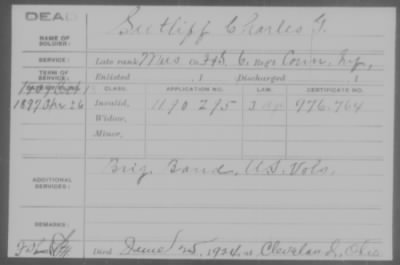 DEAD
NAME OF SOLDIER: Sutliff Charles G.
SERVICE: Late rank Mus
TERM OF SERVICE: Enlisted , 1 Discharged , 1
CLASS. APPLICATION NO. LAW. CERTIFICATE NO.
1897 Apr 26 Invalid, 1190295 976.764
Widow,
Minor,
ADDITIONAL SERVICES: Brig. Band, U.S. Vols.
REMARKS:
Died June 25, 1924, at Cleveland, Ohio